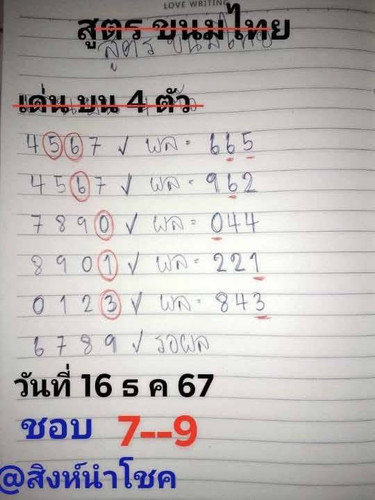 LOVE WRITING
สูตร ขนมไทย
สูตร ขนมไทย
เด่น บน 4 ตัว
4567 ✓ ผล = 665
4567 ✓ ผล = 962
7890 ✓ ผล = 044
8901 ✓ ผล = 221
0123 ✓ ผล = 843
6789 ✓ รอผล
วันที่ 16 ธ ค 67
ชอบ 7--9
@สิงห์นำโชค